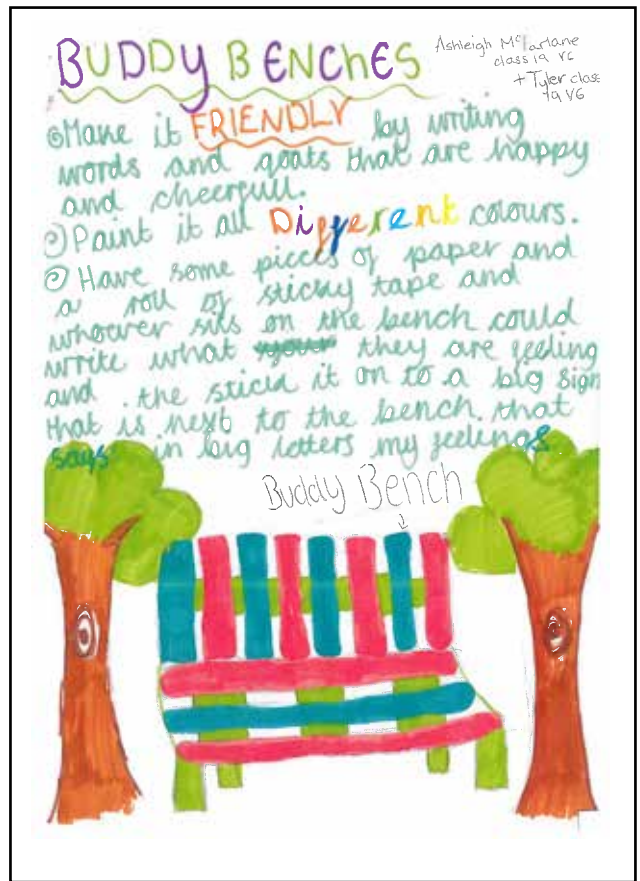 BUDDY BENChES
Ashleigh McFarlane
class 19 Y6
+ Tyler class
19 Y6
Make it FRIENDLY by writing
words and qoats that are happy
and cheerfull.
Paint it all Different colours.
Have some pieces of paper and
a roll of sticky tape and
whoever sits on the bench could
write what they are feeling
and . the stick it on to a big sign
that is next to the bench that
says in big letters my feelings
Buddy Bench